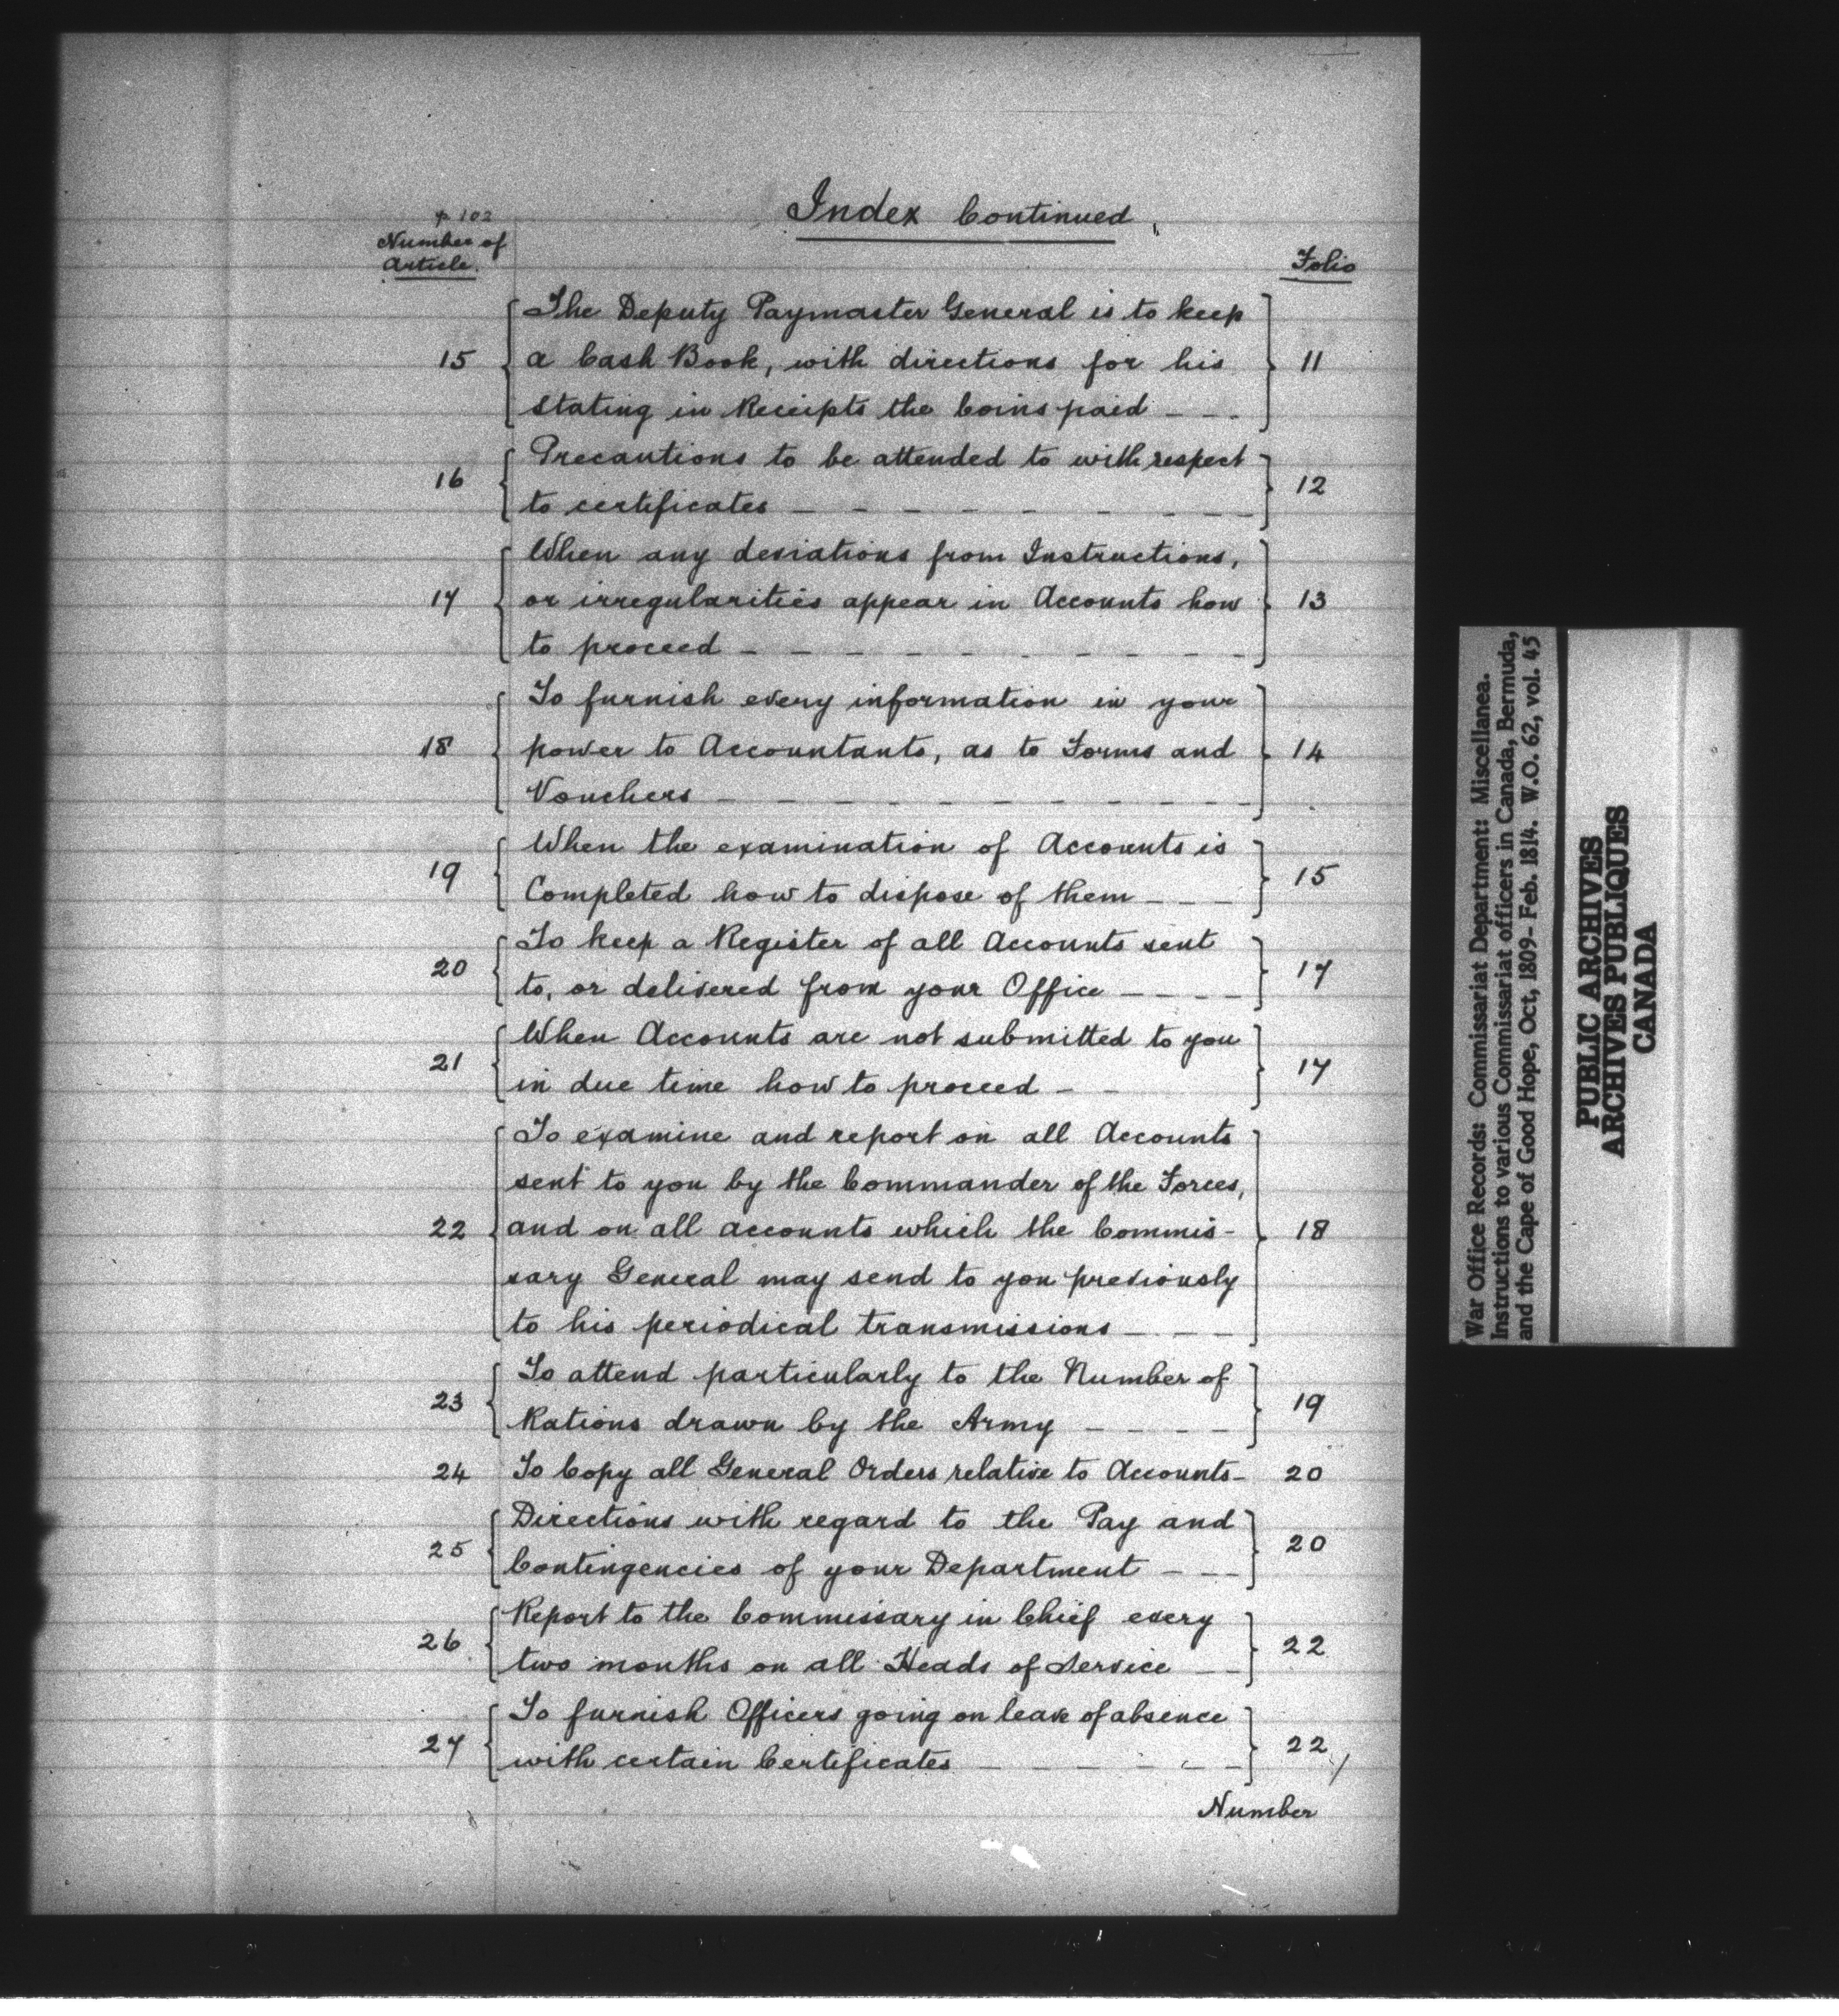 Index Continued,
p 102
Number of
Article.
Folio
The Deputy Paymaster General is to keep
15 a Cash Book, with directions for his 11
stating in Receipts the Coins paid - - -
Precautions to be attended to with respect
16 to certificates - - - - - - - - - 12
When any deviations from Instructions,
17 or irregularities appear in Accounts how 13
to proceed - - - - - - - - - -
To furnish every information in your
18 power to Accountants, as to Forms and 14
Vouchers - - - - - - - - - -
When the examination of Accounts is
19 Completed how to dispose of them - - - 15
To keep a Register of all Accounts sent
20 to, or delivered from your Office - - - - 17
When Accounts are not submitted to you
21 in due time how to proceed - - 17
To examine and report on all Accounts
sent to you by the Commander of the Forces,
22 and on all accounts which the Commis- 18
sary General may send to you previously
to his periodical transmissions - - - -
To attend particularly to the Number of
23 Rations drawn by the Army - - - - 19
24 To Copy all General Orders relative to Accounts - 20
Directions with regard to the Pay and
25 Contingencies of your Department - - - 20
Report to the Commissary in Chief every
26 two months on all Heads of Service - - 22
To furnish Officers going on leave of absence
27 with certain Certificates - - - - - - 22
Number
War Office Records: Commissariat Department: Miscellanea.
Instructions to various Commissariat officers in Canada, Bermuda,
and the Cape of Good Hope, Oct, 1809- Feb. 1814. W.O. 62, vol. 45
PUBLIC ARCHIVES
ARCHIVES PUBLIQUES
CANADA